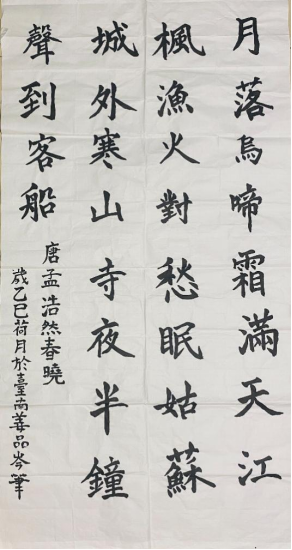 月落烏啼霜滿天江
楓漁火對愁眠姑蘇
城外寒山寺夜半鐘
聲到客船
唐孟浩然春曉
歲乙巳荷月於臺南善品岑筆